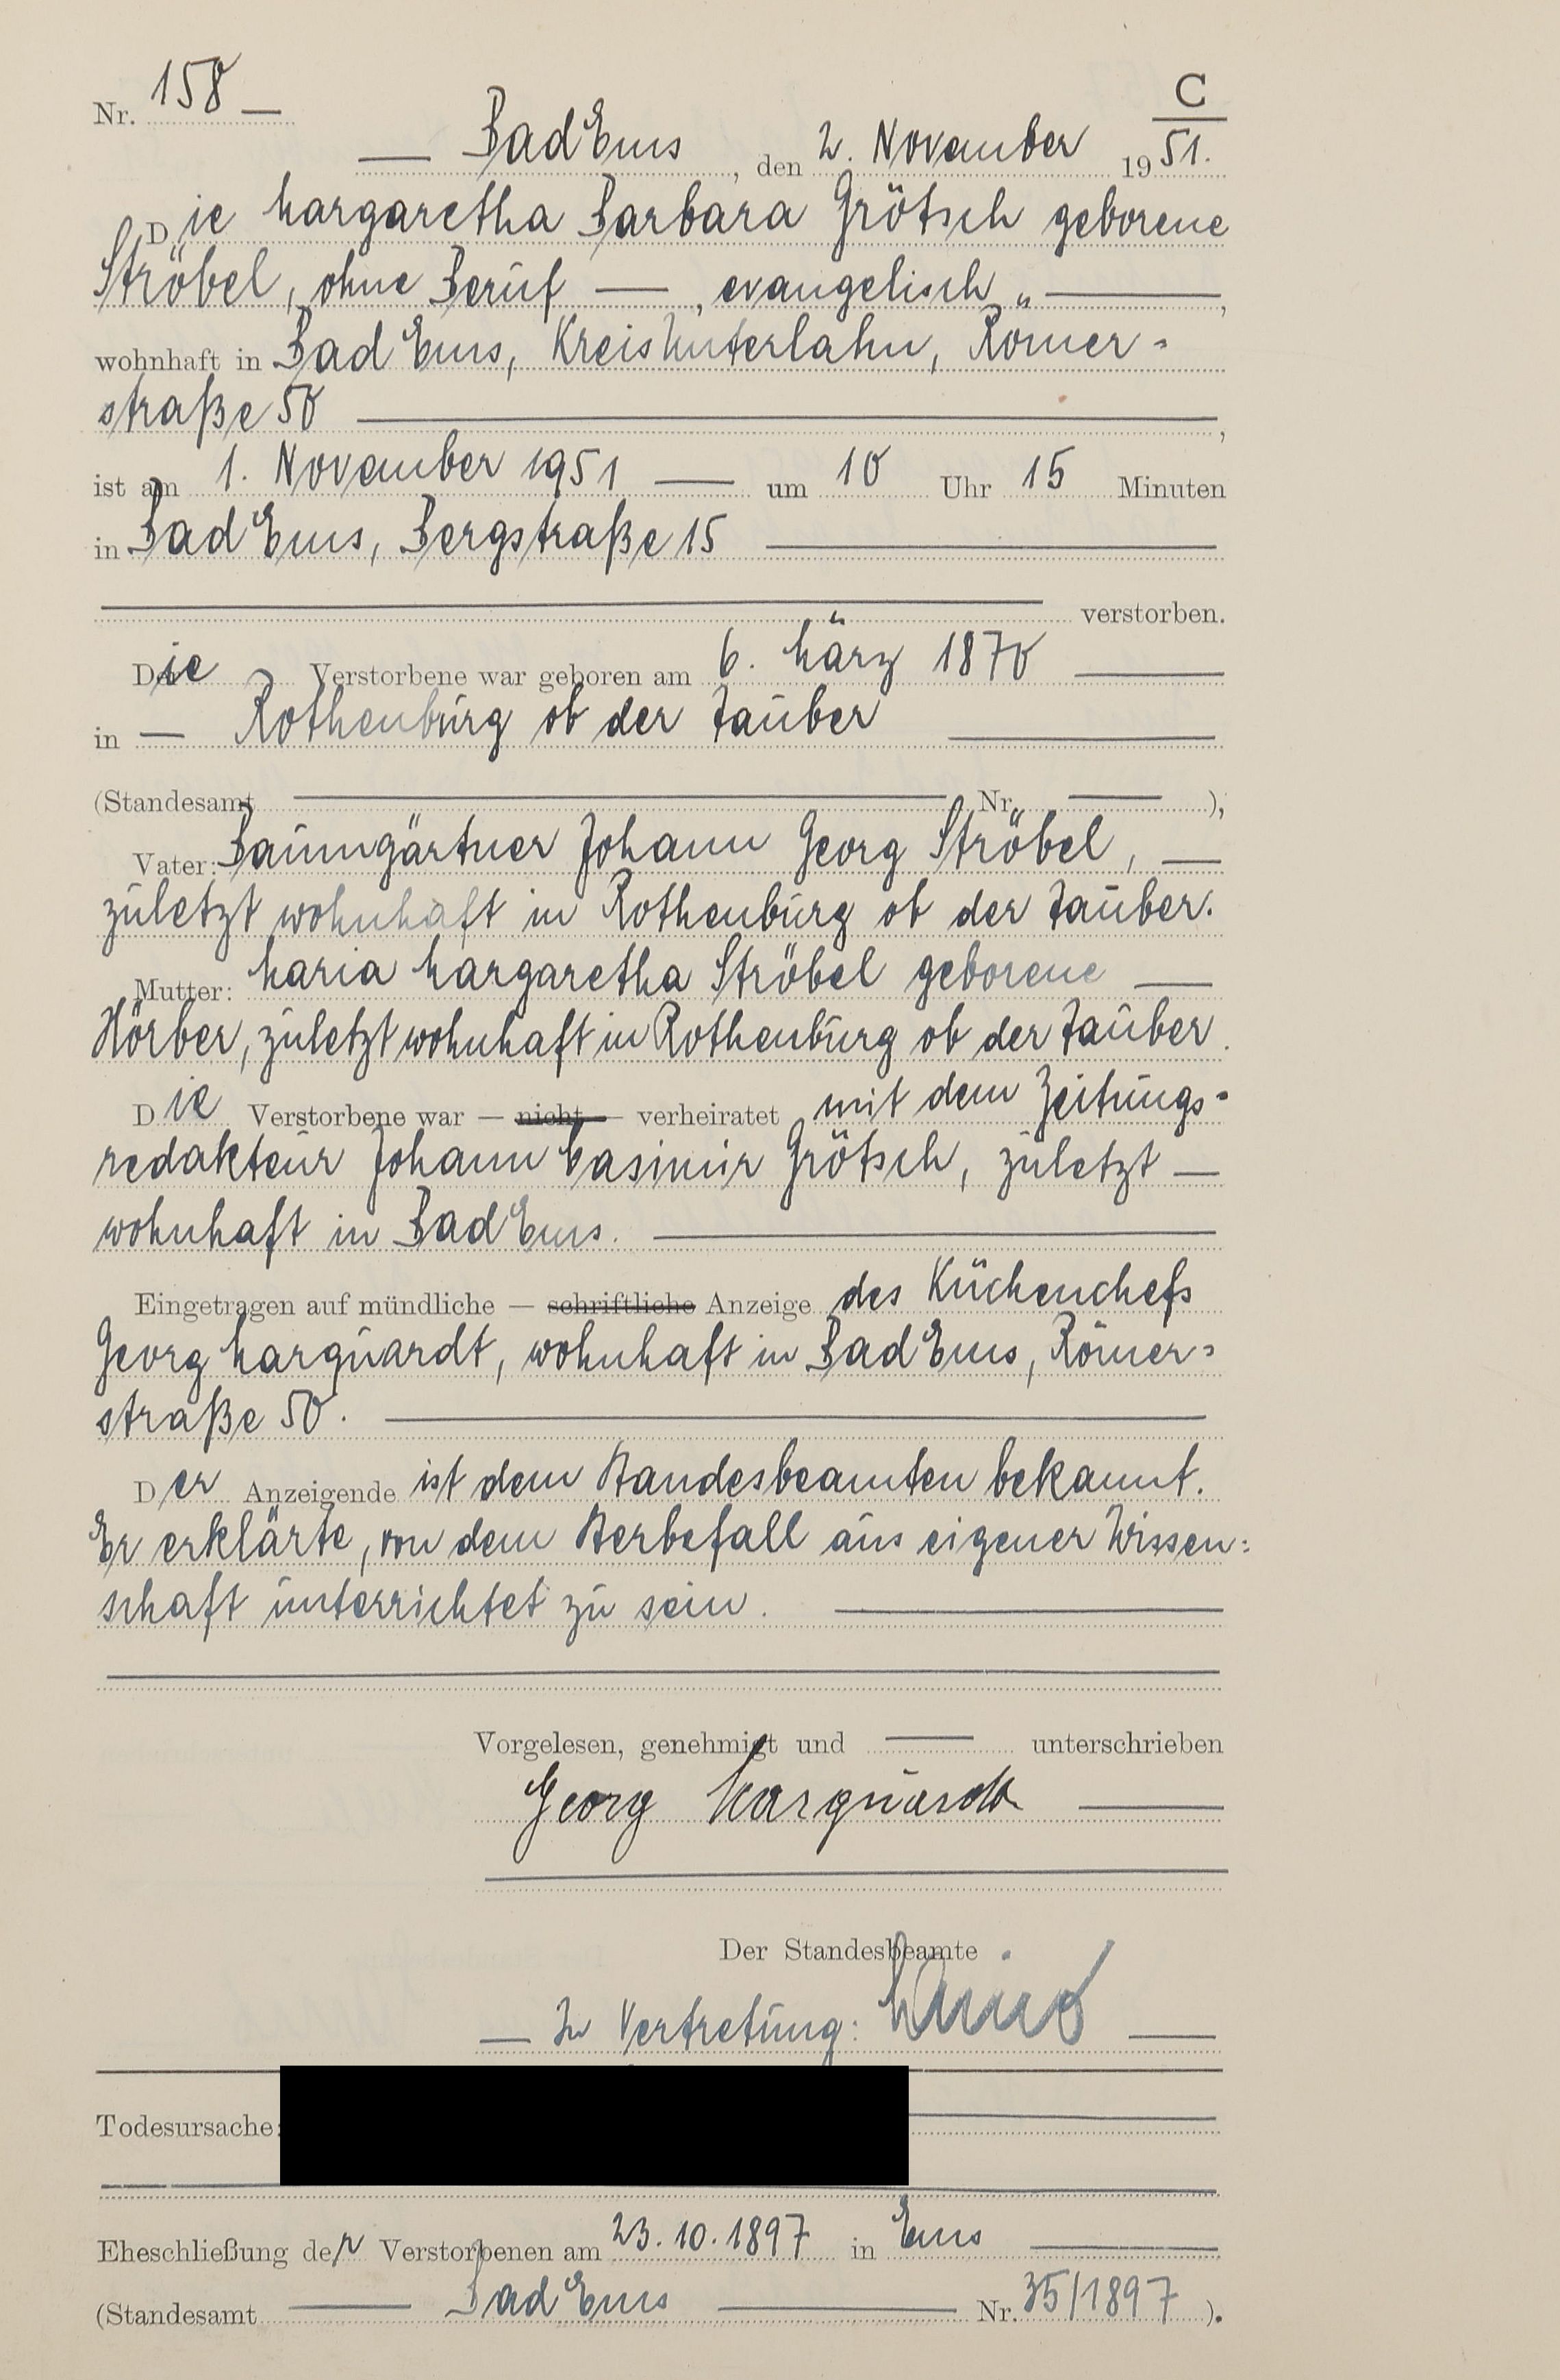 Nr. 158 —
C
— Bad Ems, den 2. November 1951.
Die Margaretha Barbara Grötsch geborene
Ströbel, ohne Beruf — , evangelisch „ —,
wohnhaft in Bad Ems, Kreis Unterlahn, Römer=
straße 50 —,
ist am 1. November 1951 — um 10 Uhr 15 Minuten
in Bad Ems, Bergstraße 15 —
— verstorben.
Die Verstorbene war geboren am 6. März 1870 —
in — Rothenburg ob der Tauber —
(Standesamt — Nr. —),
Vater: Baumgärtner Johann Georg Ströbel, —
zuletzt wohnhaft in Rothenburg ob der Tauber.
Mutter: Maria Margaretha Ströbel geborene —
Hörber, zuletzt wohnhaft in Rothenburg ob der Tauber.
Die Verstorbene war — nicht — verheiratet mit dem Zeitungs=
redakteur Johann Casimir Grötsch, zuletzt —
wohnhaft in Bad Ems. —
Eingetragen auf mündliche — schriftliche Anzeige des Küchenchefs
Georg Marquardt, wohnhaft in Bad Ems, Römer=
straße 50. —
Der Anzeigende ist dem Standesbeamten bekannt.
Er erklärte, von dem Sterbefall aus eigener Wissen=
schaft unterrichtet zu sein. —
Vorgelesen, genehmigt und — unterschrieben
Georg Marquardt —
Der Standesbeamte
— In Vertretung: —
Todesursache:
Eheschließung der Verstorbenen am 23.10.1897 in Ems —
(Standesamt — Bad Ems — Nr. 35/1897).